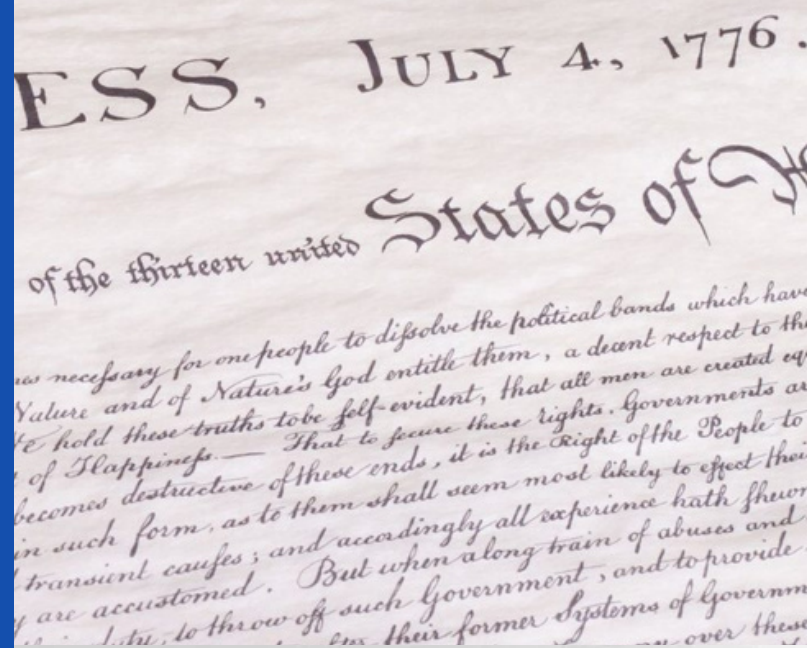 ESS, JULY 4, 1776.
of the thirteen united States of
neceſsary for one people to diſsolve the political bands which have
Nature and of Nature's God entitle them, a decent respect to the
We hold these truths to be ſelf-evident, that all men are created eq
of Happineſs.— That to ſecure these rights, Governments ar
becomes destructive of these ends, it is the Right of the People to
in such form, as to them shall seem most likely to effect thei
transient cauſes; and accordingly all experience hath ſhewn
are accustomed. But when a long train of abuses and
duty, to throw off such Government, and to provide
their former Systems of Governm
over these